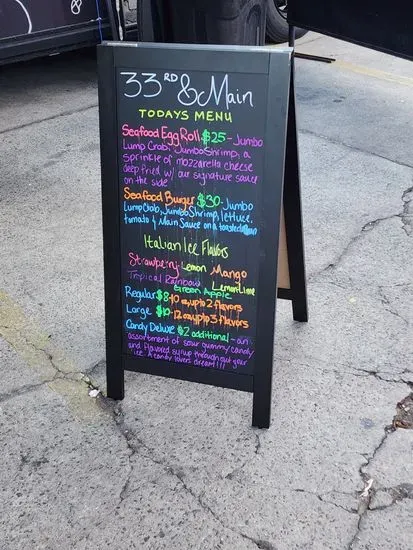 33RD & Main
TODAYS MENU
Seafood Egg Roll $25 - Jumbo
Lump Crab, Jumbo Shrimp, a
sprinkle of mozzarella cheese
deep fried w/ our signature sauce
on the side
Seafood Burger $30 - Jumbo
Lump Crab, Jumbo Shrimp, lettuce,
tomato & Main Sauce on a toasted
Italian Ice Flavors
Strawberry Lemon Mango
Tropical Rainbow Lemon Lime
Green Apple
Regular $8 - 10 oz, up to 2 flavors
Large $10 - 12 oz, up to 3 flavors
Candy Deluxe $2 additional - an
assortment of sour gummy candy
and flavored syrup throughout your
ice. A candy lovers dream!!!!